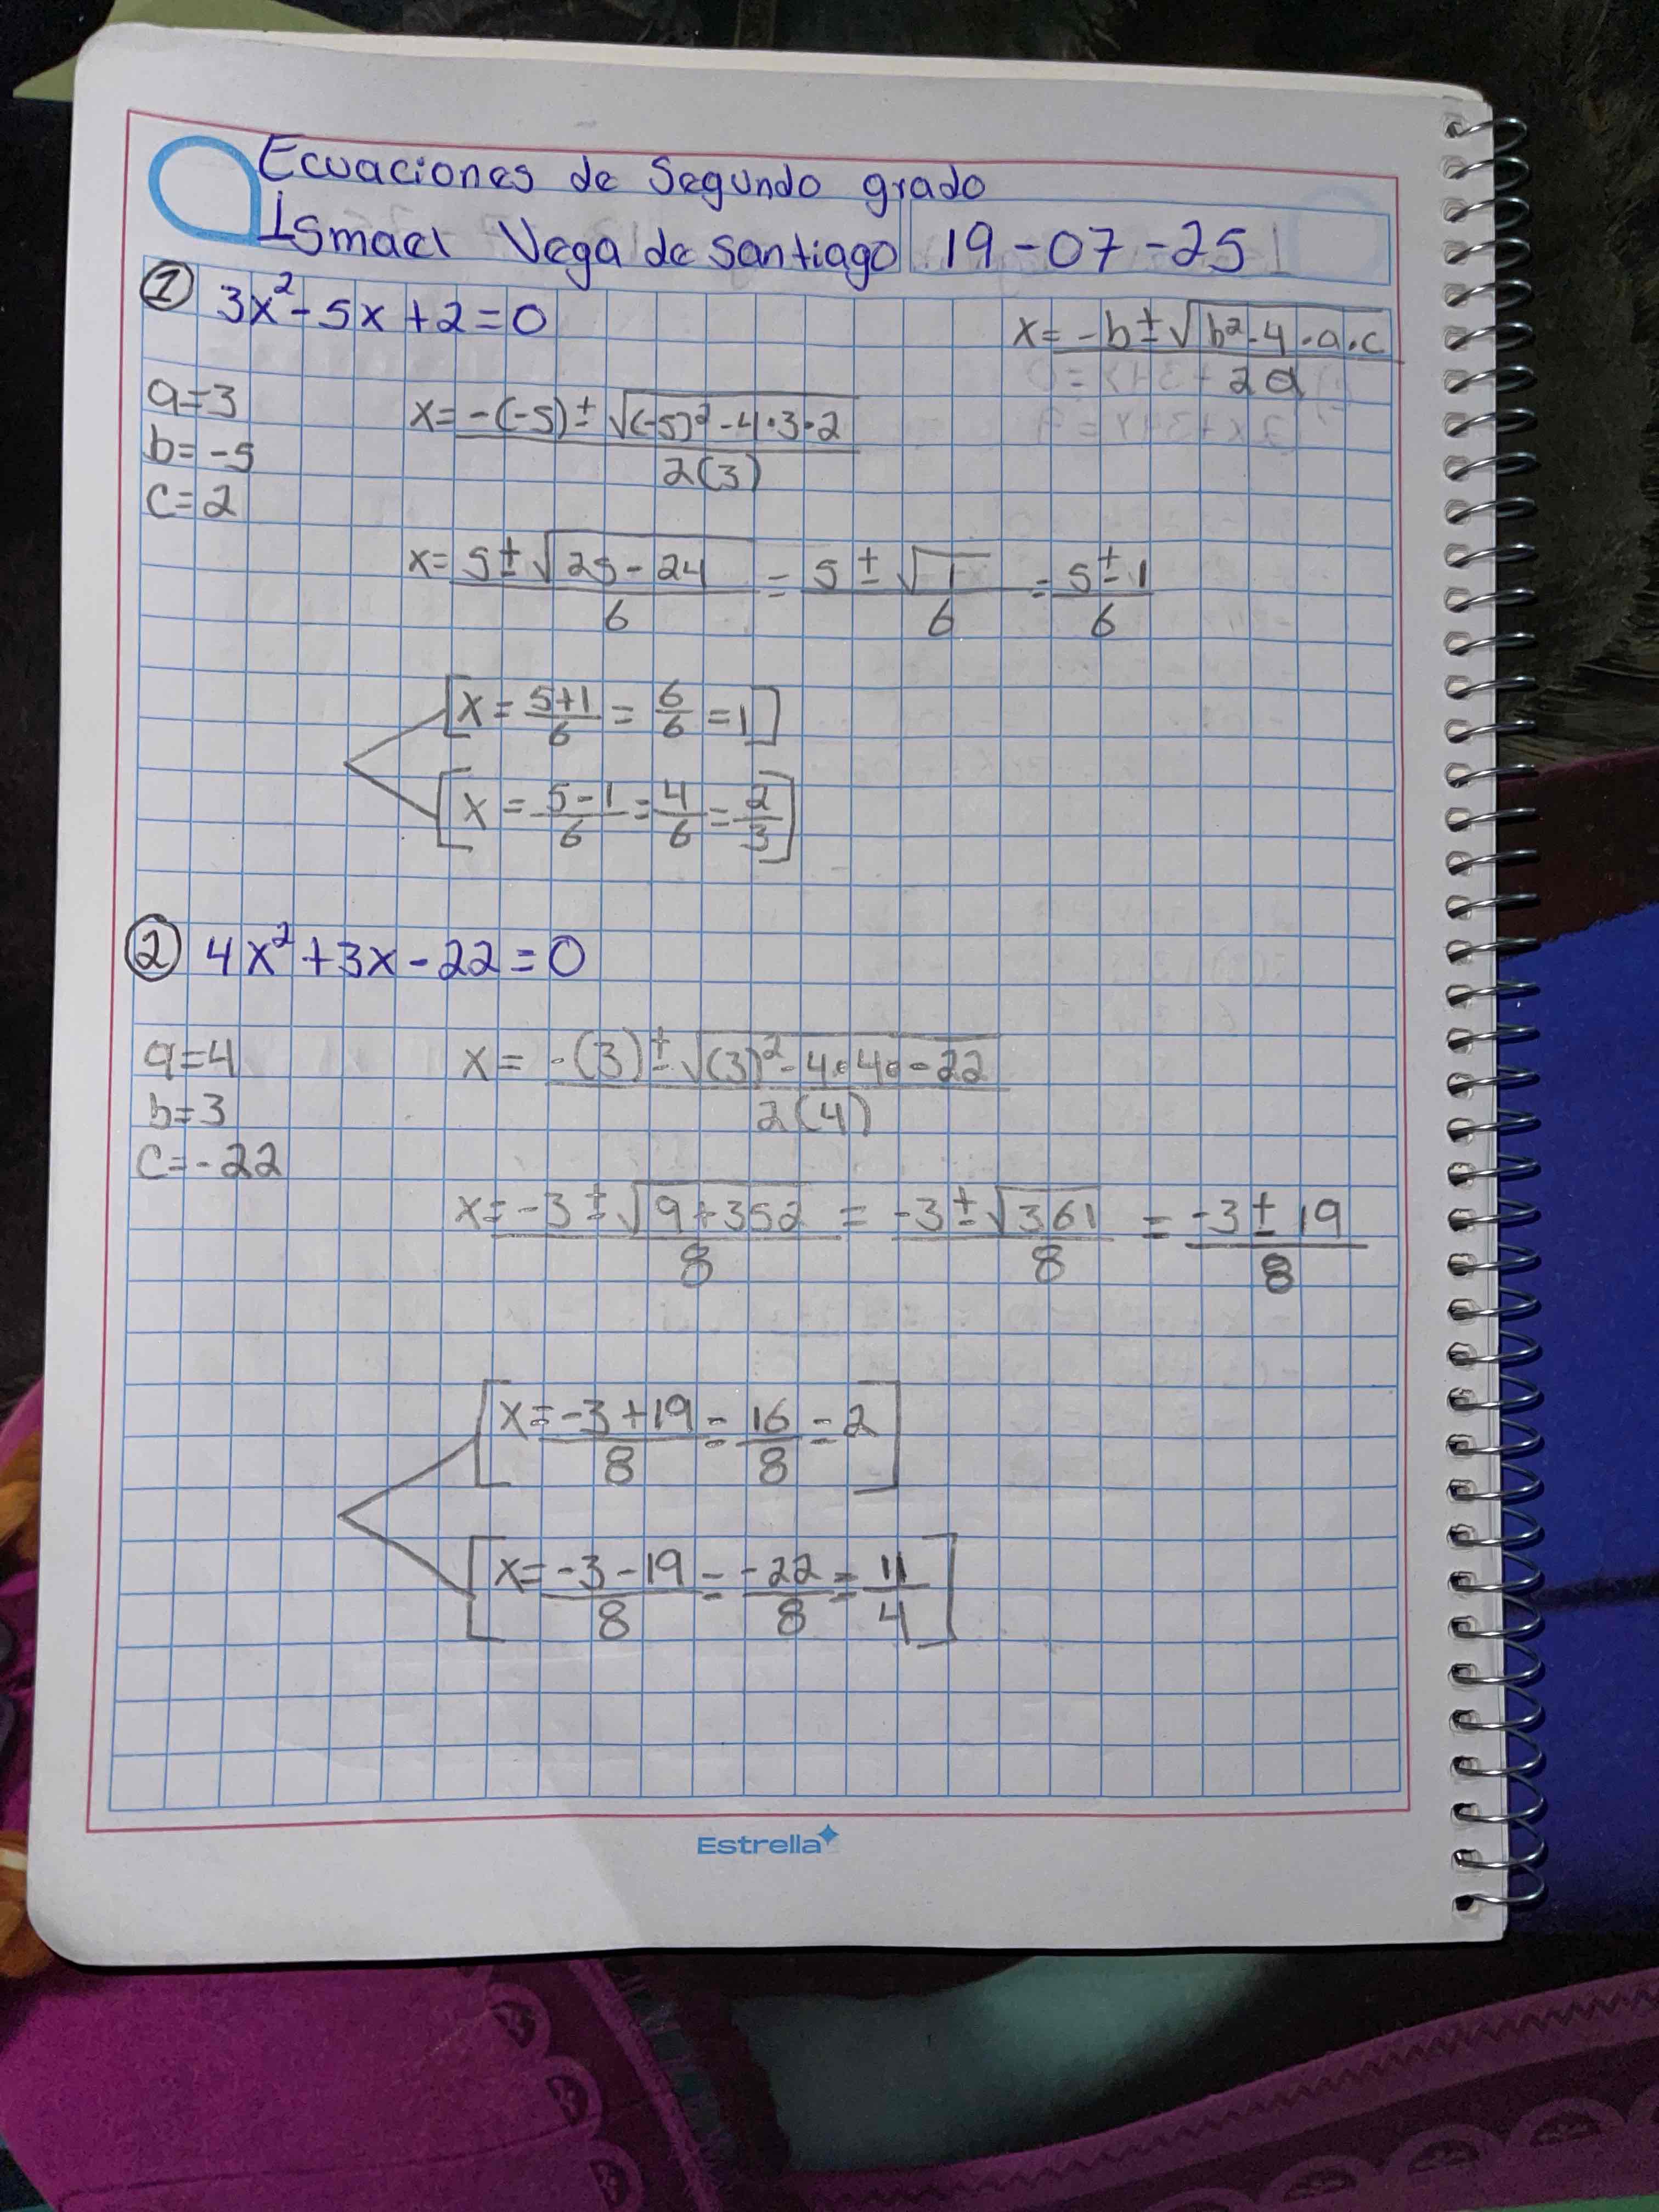 Ecuaciones de Segundo grado
Ismael Vega de Santiago 19-07-25
① 3x²-5x+2=0
x=-b±√b²-4·a·c
2a
a=3
b=-5
c=2
x=-(-5)±√(-5)²-4·3·2
2(3)
x=5±√25-24 = 5±√1 = 5±1
6 6 6
[x=5+1/6=6/6=1]
[x=5-1/6=4/6=2/3]
② 4x²+3x-22=0
a=4
b=3
c=-22
x=-(3)±√(3)²-4·4·-22
2(4)
x=-3±√9+352 = -3±√361 = -3±19
8 8 8
[x=-3+19/8=16/8=2]
[x=-3-19/8=-22/8=11/4]
Estrella